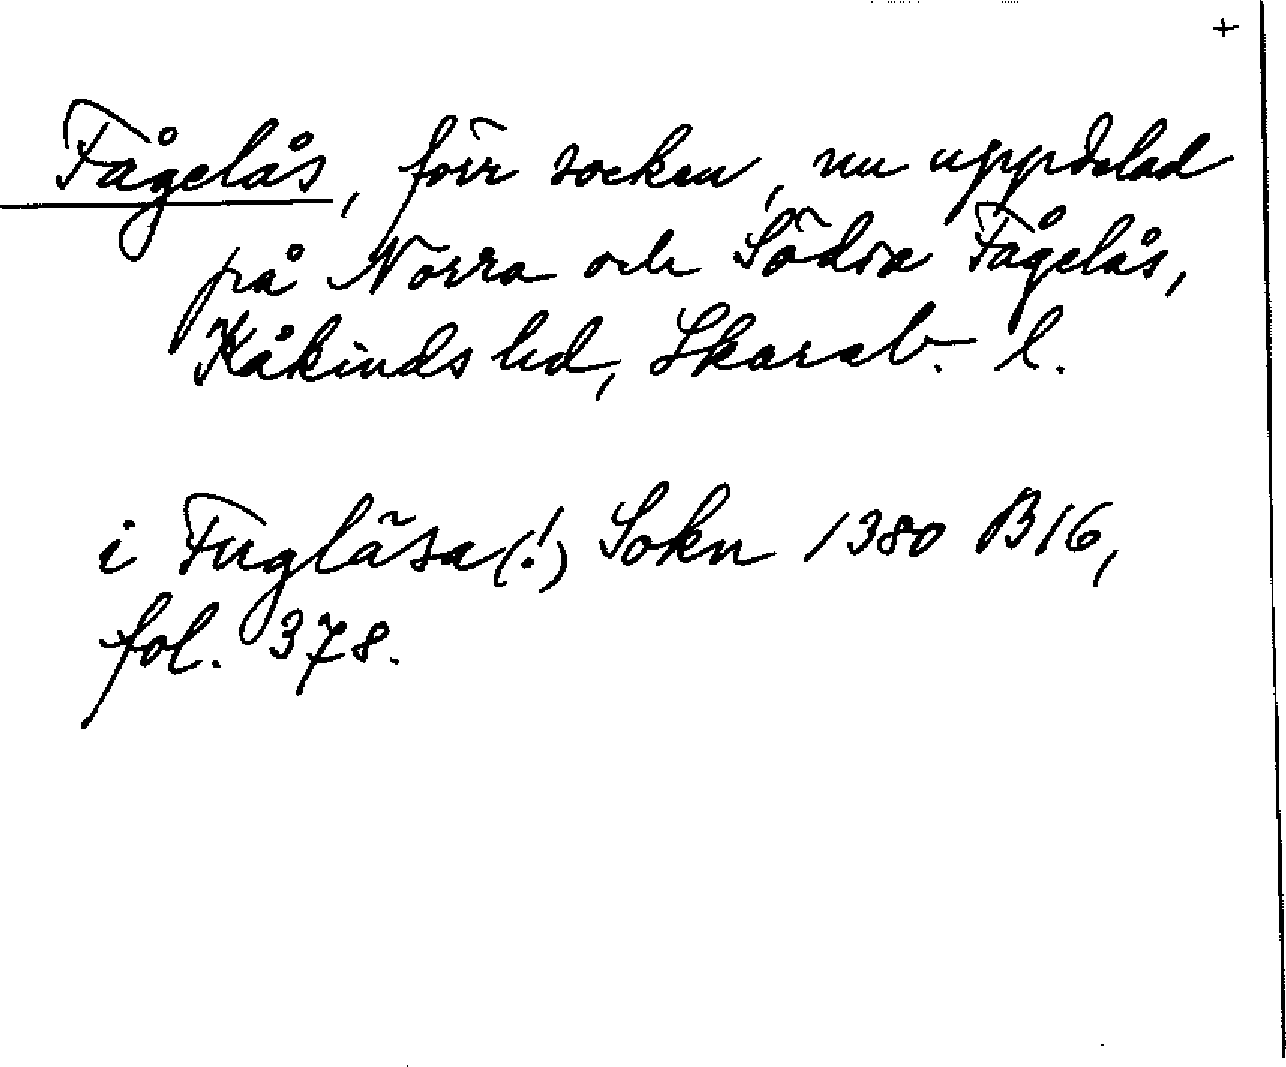 +
Fågelås, förr socken, nu uppdelad
på Norra och Södra Fågelås,
Kåkinds hd, Skarab. l.
i Fugläsa(!) Sokn 1380 B16,
fol. 378.